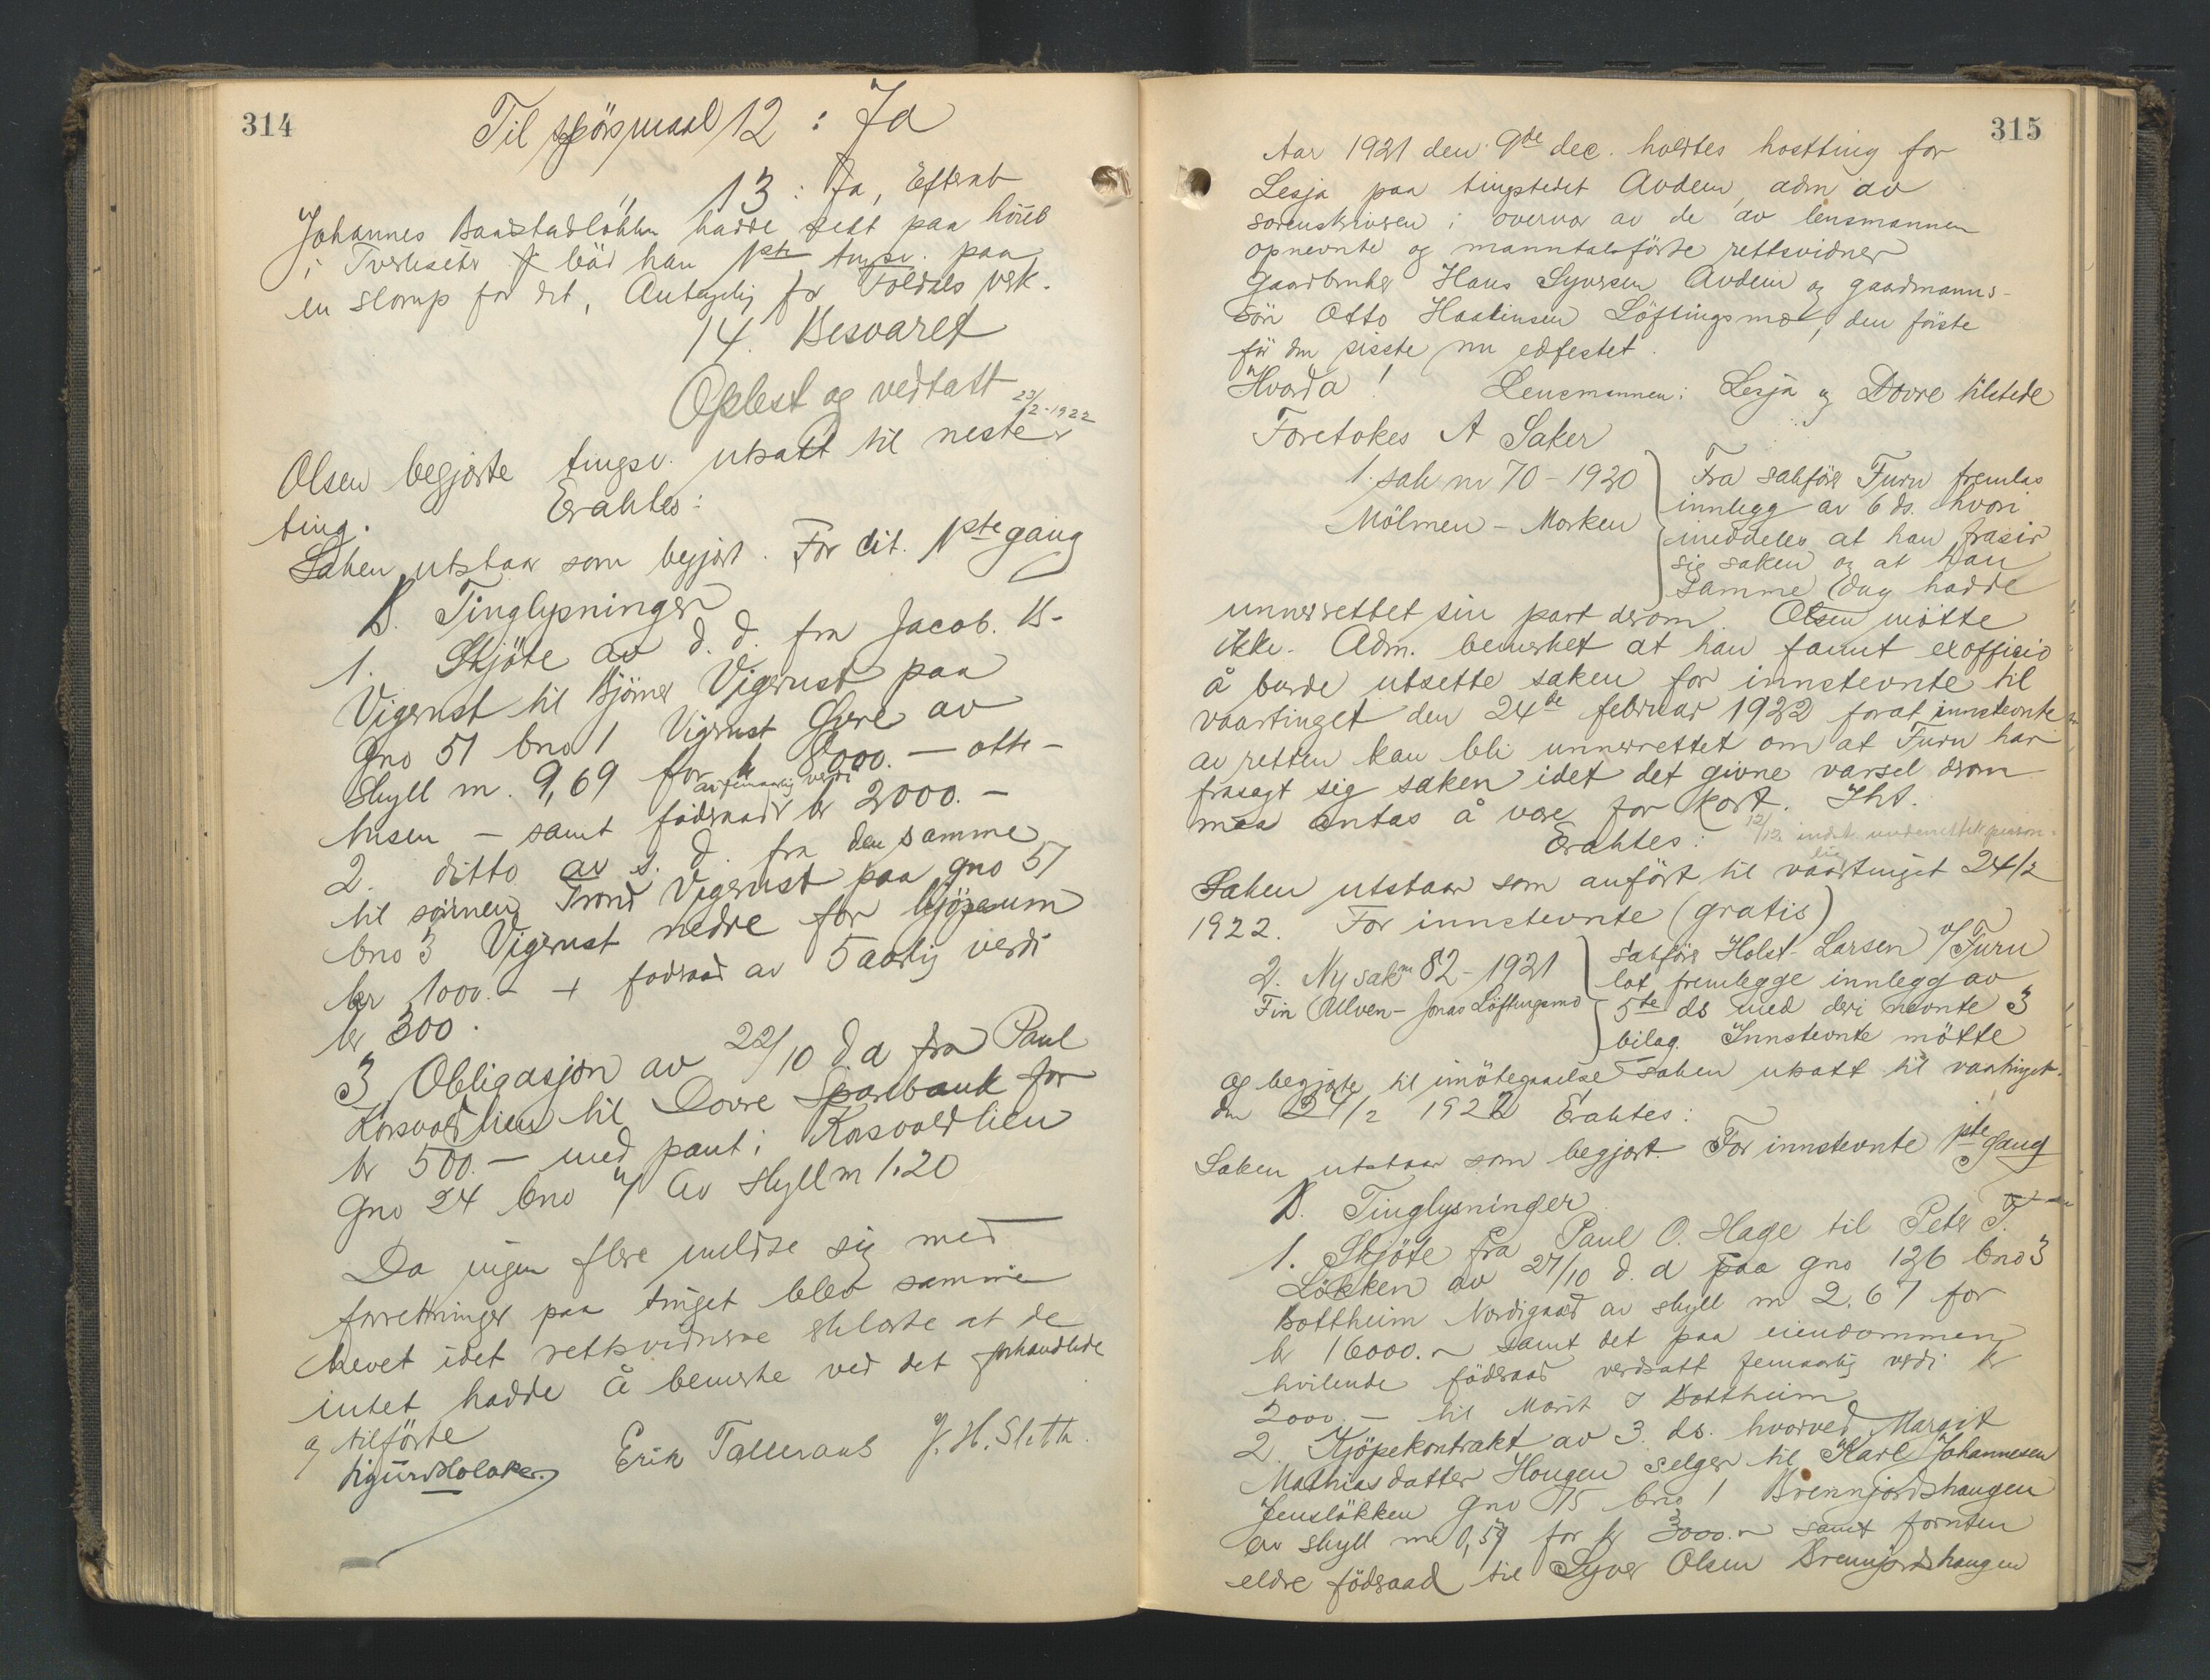 314
Til spörsmaal 12 : Ja
" 13 : Ja, Efterat
Johannes Baastadlökken hadde sett paa
i Tverlisetr bad han 1ste tingsv. paa
en slomp for det, Antagelig for Foldals verk.
14. Besvaret
Oplest og vedtatt
23/2-1922
Olsen begjærte tingsv. utsatt til neste
ting. Erahtes:
Saken utstaar som begjært. For cit. 1ste gang
B. Tinglysninger
1. Skjöte av d. d. fra Jacob. B.
Vigerust til Björner Vigerust paa
gno 51 bno 1 Vigerust övre av
skyll m. 9,69 for kr 8000.— otte-
av femaarlig verdi
tusen — samt föderaad kr 2000.—
2. ditto av s. d. fra den samme
til sönnen Trond Vigerust paa gno 51
bno 3 Vigerust nedre for kjöpesum
kr 1000.— + föderaad av 5 aarlig verdi
kr 300.
3 Obligasjon av 22/10 d a fra Paul
Korsvoldlien til Dovre Sparebank for
kr 500.— med pant i Korsvoldlien
gno 24 bno 4 av skyll m 1.20
Da ingen flere meldte sig med
forretninger paa tinget blev samme
hevet idet rettsvidnerne erklærte at de
intet hadde å bemerke ved det forhandlede
og tilförte
Sigurd Holaker. Erik Talleraas J. H. Sletten.
315
Aar 1921 den 9de dec. holdtes hostting for
Lesja paa tingstedet Avdem, adm av
sorenskriveren i overvær av de av lensmannen
opnevnte og manntalsförte rettsvidner
Gaardbruker Hans Syversen Avdem og gaardmanns-
sön Otto Haakensen Löftingsmo, den förste
för den sisste nu edfestet.
Hvorda! Lensmannen i Lesja og Dovre tilstede
Foretokes A Saker
1. sak nr 70 - 1920
Mölmen - Morken
Fra sakförer Furu fremlas
innlegg av 6 ds. hvori
meddeles at han frasir
sig saken og at han
samme dag hadde
unnerrettet sin part derom. Olsen mötte
ikke. Adm. bemerket at han fannt exofficio
å burde utsette saken for innstevnte til
vaartinget den 24de februar 1922 forat innstevnte
av retten kan bli unnerrettet om at Furu har
frasagt sig saken idet det givne varsel derom
maa antas å være for kort. Iht.
Erahtes: 12/12 indst. underrettet person-
lig
Saken utstaar som anfört til vaartinget 24/2
1922. For innstevnte (gratis)
2. Ny sak nr 82 - 1921
Fin Ulven - Jonas Löftingsmo
Sakförer Holst-Larsen v/ Furu
lot fremlegge innlegg av
5te ds med deri nevnte 3
bilag. Innstevnte mötte
og begjærte til imötegaaelse saken utsatt til vaartinget
den 24/2 1922 Erahtes:
Saken utstaar som begjært. For innstevnte 1ste gang
B. Tinglysninger
1. Skjöte fra Paul O. Hage til Peter T.
Lökken av 27/10 d. a paa gno 126 bno 3
Bottheim Nordigaard av skyll m 2.67 for
kr 16000.— samt det paa eiendommen
hvilende föderaad verdsatt femaarlig verdi kr
2000.— til Marit J Bottheim
2. Kjöpekontrakt av 3. ds. hvorved Margit
Mathiasdatter Hougen selger til Karl Johannesen
Jenslökken gno 75 bno 1 Brennjordshaugen
av skyll m 0,57 for kr 3000.— samt foruten
eldre föderaad til Syver Olsen Brennjordshaugen